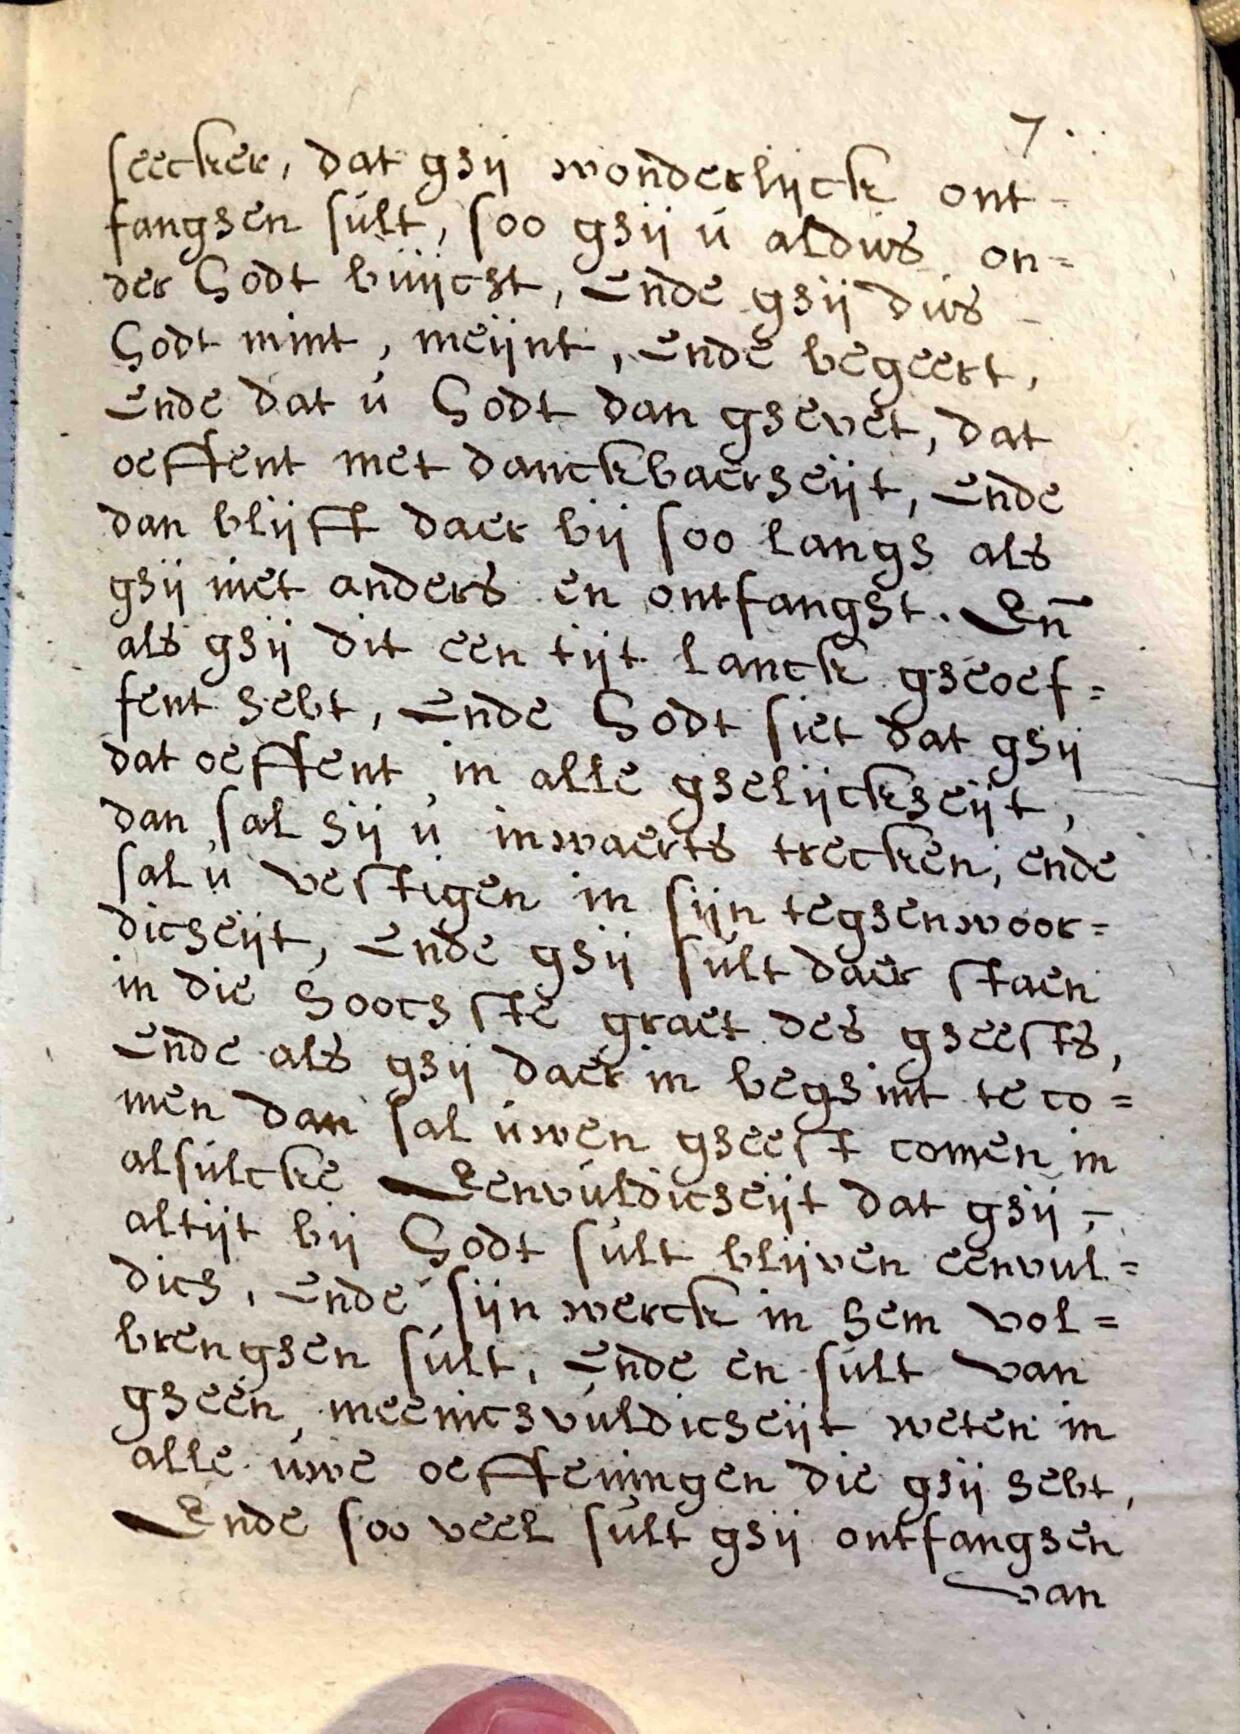 7.
seecker, dat ghij wonderlijck ont-
fanghen sult, soo ghij u aldus on=
der Godt buijcht, Ende ghij dus -
Godt mint, meijnt, Ende begeert,
Ende dat u Godt dan ghevet, dat
oeffent met danckbaerheijt, Ende
dan blijfft daer bij soo langh als
ghij niet anders en ontfanght. En̄
als ghij dit een tijt lanck gheoef=
fent hebt, Ende Godt siet dat ghij
dat oeffent in alle ghelijckheijt,
dan sal hij u inwaerts trecken, ende
sal u vestigen in sijn teghenwoor=
dicheijt, Ende ghij sult daer staen
in die hoochste graet des gheests,
Ende als ghij daer in beghint te co=
men dan sal uwen gheest comen in
alsulcke Eenvuldicheijt dat ghij -
altijt bij Godt sult blijven eenvul=
dich, Ende sijn werck in hem vol=
brenghen sult, Ende en sult van
gheen meenichvuldicheijt weten in
alle uwe oeffeningen die ghij hebt,
Ende soo veel sult ghij ontfanghen
van